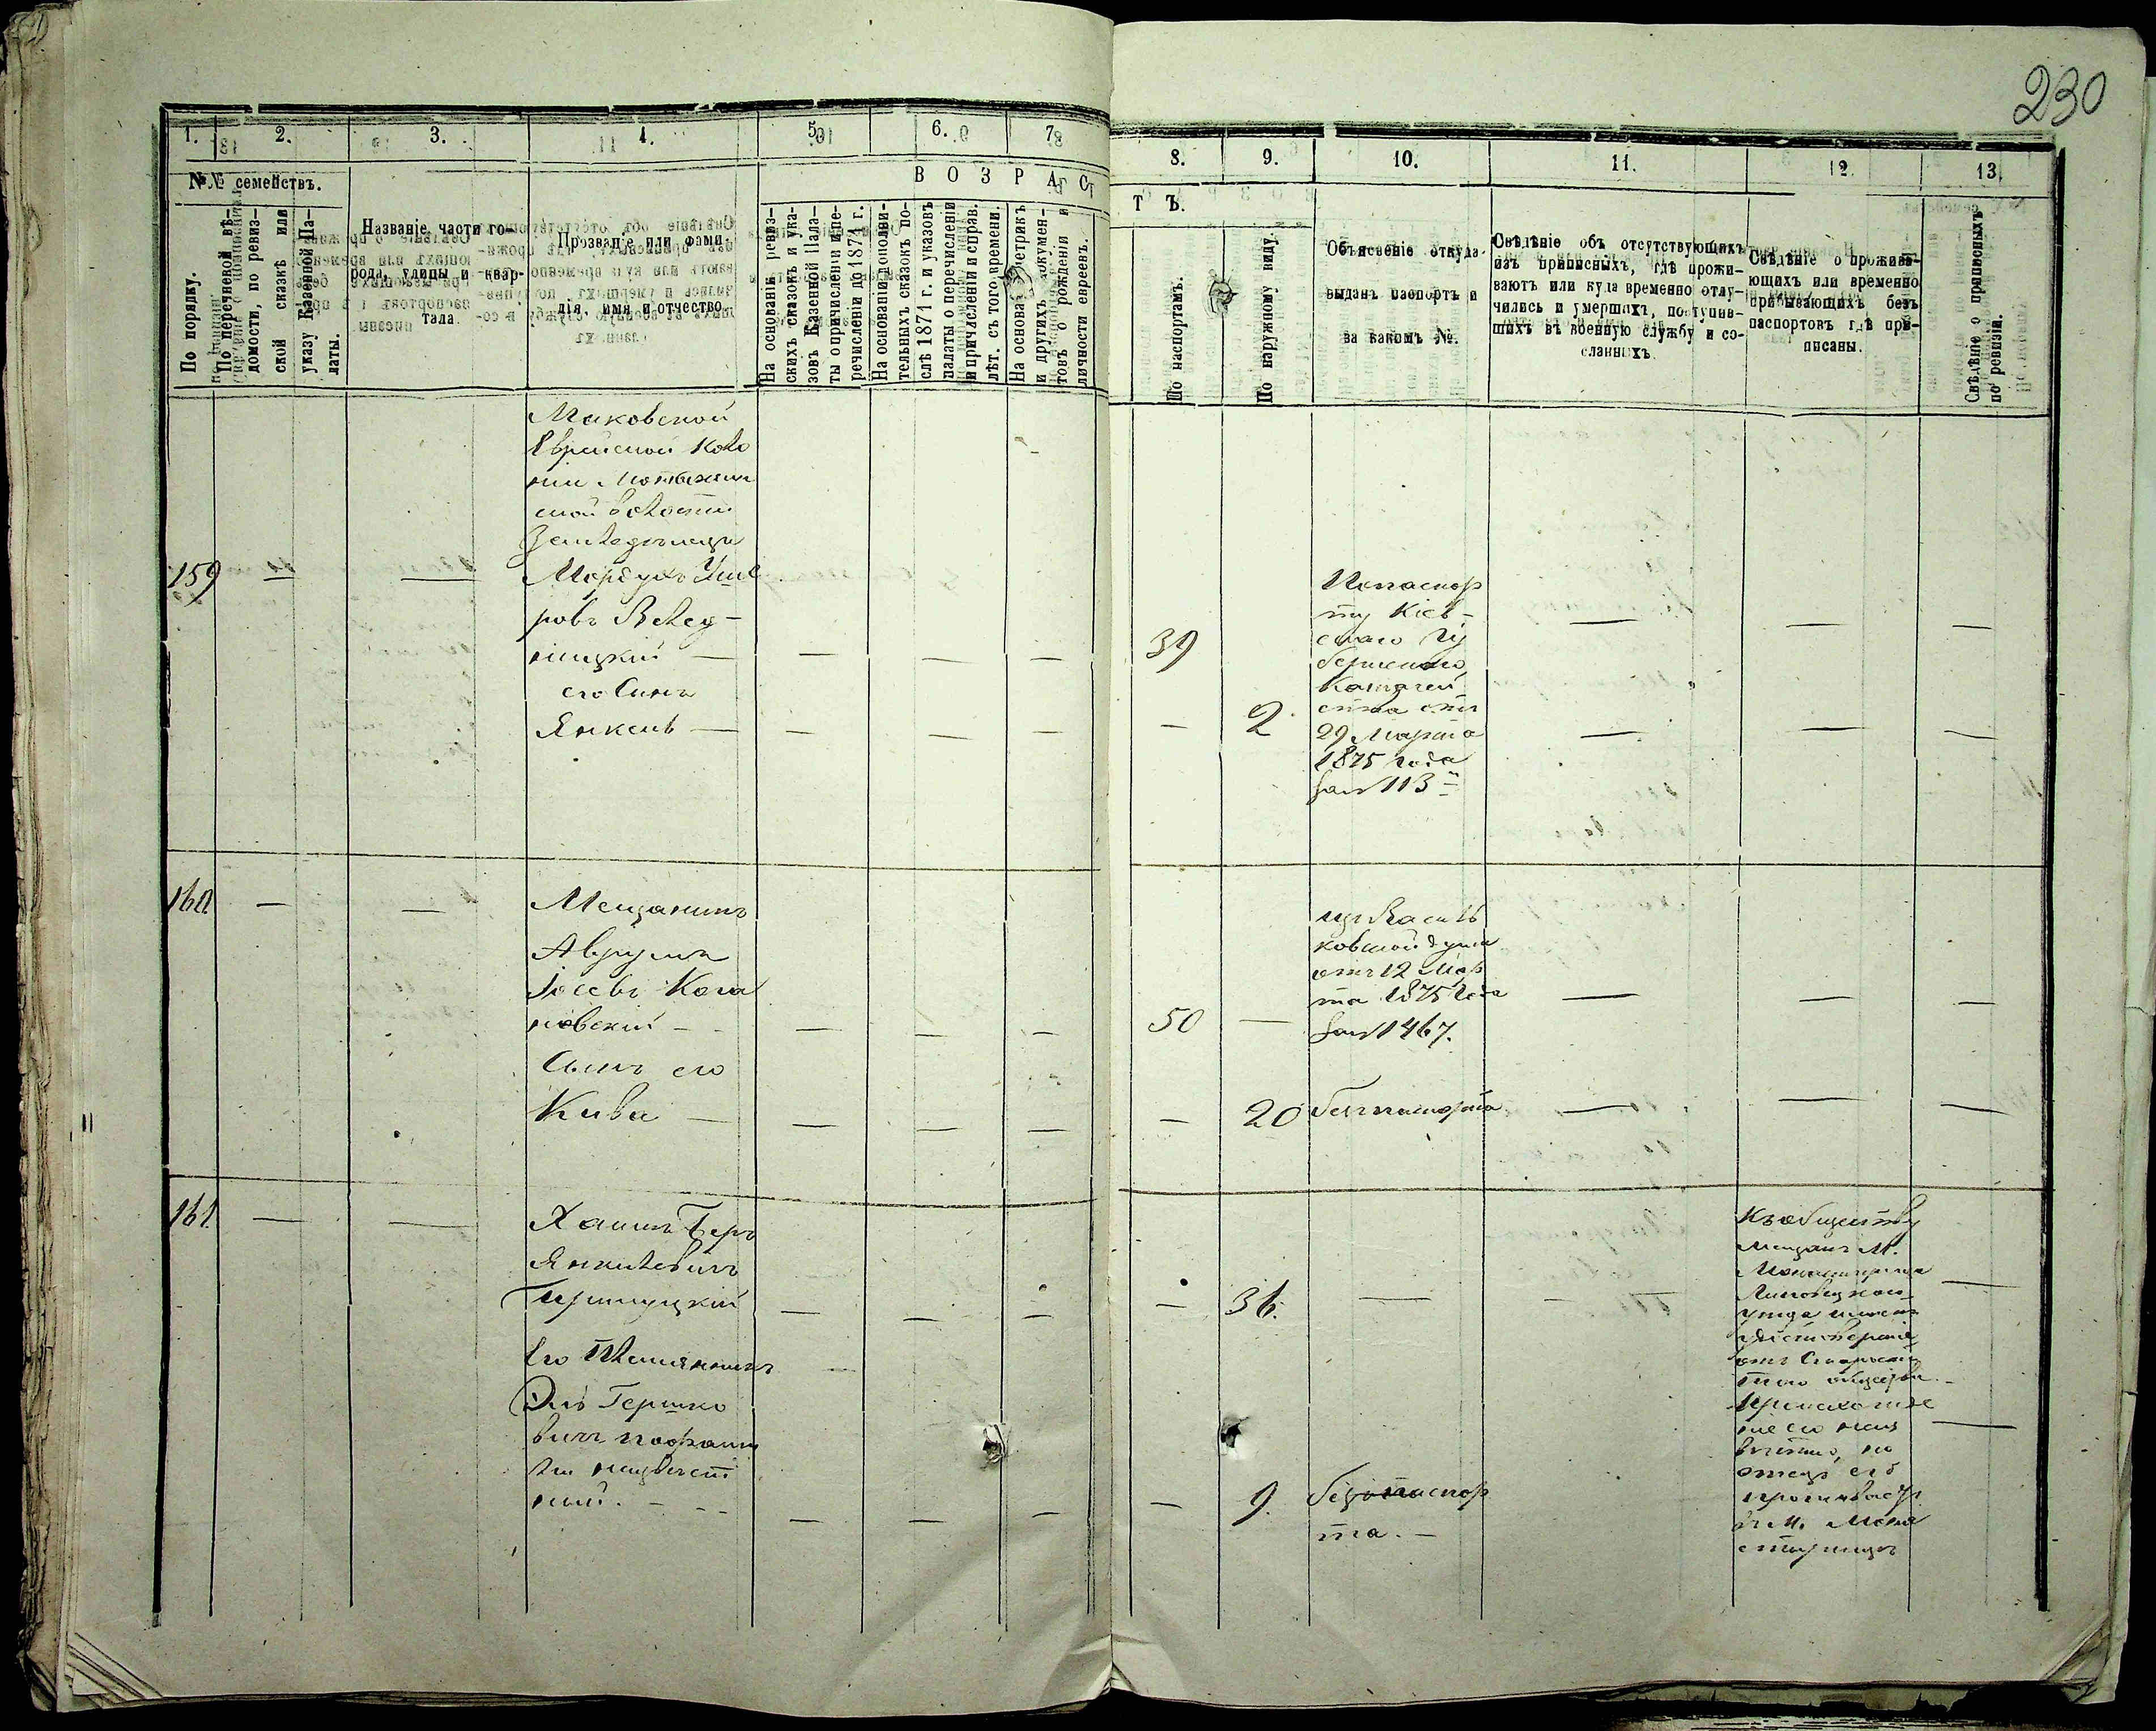 230
1.
2.
3.
4.
5.
6.
7.
8.
9.
10.
11.
12.
13.
№№ семействъ.
В О З Р А С Т Ъ.
По порядку.
По перечневой вѣ-
домости, по ревиз-
ской сказкѣ или
указу Казенной Па-
латы.
Названіе части го-
рода, улицы и квар-
тала
Прозваніе или фами-
лія, имя и отчество.
На основаніи ревиз-
скихъ сказокъ и ука-
зовъ Казенной Пала-
ты о причисленіи и пе-
речисленіи до 1874 г.
На основаніи дополни-
тельныхъ сказокъ по-
слѣ 1871 г. и указовъ
палаты о перечисленіи
и причисленіи и справ.
лѣт. съ того времени.
На основа метрикъ
и другихъ докумен-
товъ о рожденіи и
личности евреевъ.
По паспортамъ.
По наружному виду.
Объясненіе откуда
выданъ паспортъ и
за какимъ №.
Свѣдѣніе объ отсутствующихъ
изъ приписныхъ, гдѣ прожи-
ваютъ или куда временно отлу-
чились и умершихъ, поступив-
шихъ въ военную службу и со-
сланныхъ.
Свѣдѣніе о прожива-
ющихъ или временно
пребывающихъ безъ
паспортовъ гдѣ при-
писаны.
Свѣдѣніе о приписныхъ
по ревизіи.
Маковской
Еврейской Коло
ніи
волости
Земледѣлецъ
159 — — Мордухъ
ровъ Велед-
ницкій — — — — 39
его Сынъ
Янкель — — — — — 2
Попаспор
ту Кіев-
скаго Гу
бернскаго
Казначей
ства отъ
29 Марта
1875 года
за № 113
— — —
— — —
160 — — Мещанинъ
Аврумъ
Іосевъ Кага
новскій — — — — 50 —
Сынъ его
Кива — — — — — 20
изъ Василь
ковской думы
отъ 12 Мар
та 1875 года
за № 1467.
— — —
безъ паспорта — — —
161 — — Хаимъ Беръ
Янкелевичъ
— — — — 36. — —
Его Племянникъ
Эль Гершко
вичъ по фами
ліи неизвѣст
ный. — — — — — 9.
безъ паспор
та. —
Къ обществу
Мещанъ М.
Монастырища
Липовецкаго
уѣзда
отъ Старосты
того общества
происхожде
ніе его неиз
вѣстно, но
отецъ его
проживаетъ
въ М. Мона
стырищѣ